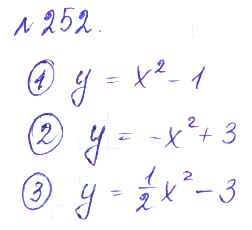 № 252.
① y = x² - 1
② y = -x² + 3
③ y = ½x² - 3